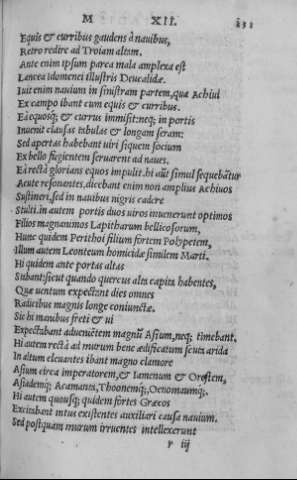 M XII. 131
Equis & curribus gaudens à nauibus,
Retro redire ad Troiam altam.
Ante enim ipsum parca mala amplexa est
Lancea idomenei illustris Deucalidæ.
Iuit enim nauium in sinistram partem, qua Achiui
Ex campo ibant cum equis & curribus.
Ea equosq; & currus immisit: neq; in portis
Inuenit clausas tabulas & longam seram:
Sed apertas habebant uiri siquem socium
Ex bello fugientem seruarent ad naues.
Ea recta glorians equos impulit. hi aūt simul sequebātur
Acute resonantes, dicebant enim non amplius Achiuos
Sustineri, sed in nauibus nigris cadere
Stulti. in autem portis duos uiros inuenerunt optimos
Filios magnanimos Lapitharum bellicosorum,
Hunc quidem Perithoi filium fortem Polypetem,
Illum autem Leonteum homicidæ similem Marti.
Hi quidem ante portas altas
Stabant: sicut quando quercus altæ capita habentes,
Quæ uentum expectant dies omnes
Radicibus magnis longe coniunctæ.
Sic hi manibus freti & ui
Expectabant adueniētem magnū Asium, neq; timebant.
Hi autem recta ad murum bene ædificatum scuta arida
In altum eleuantes ibant magno clamore
Asium circa imperatorem, & Iamenum & Orestem,
Asiademq; Acamanta, Thoonemq;, Oenomaumq;.
Hi autem quousq; quidem fortes Græcos
Excitabant intus existentes auxiliari causa nauium.
Sed postquam murum irruentes intellexerunt
r iij